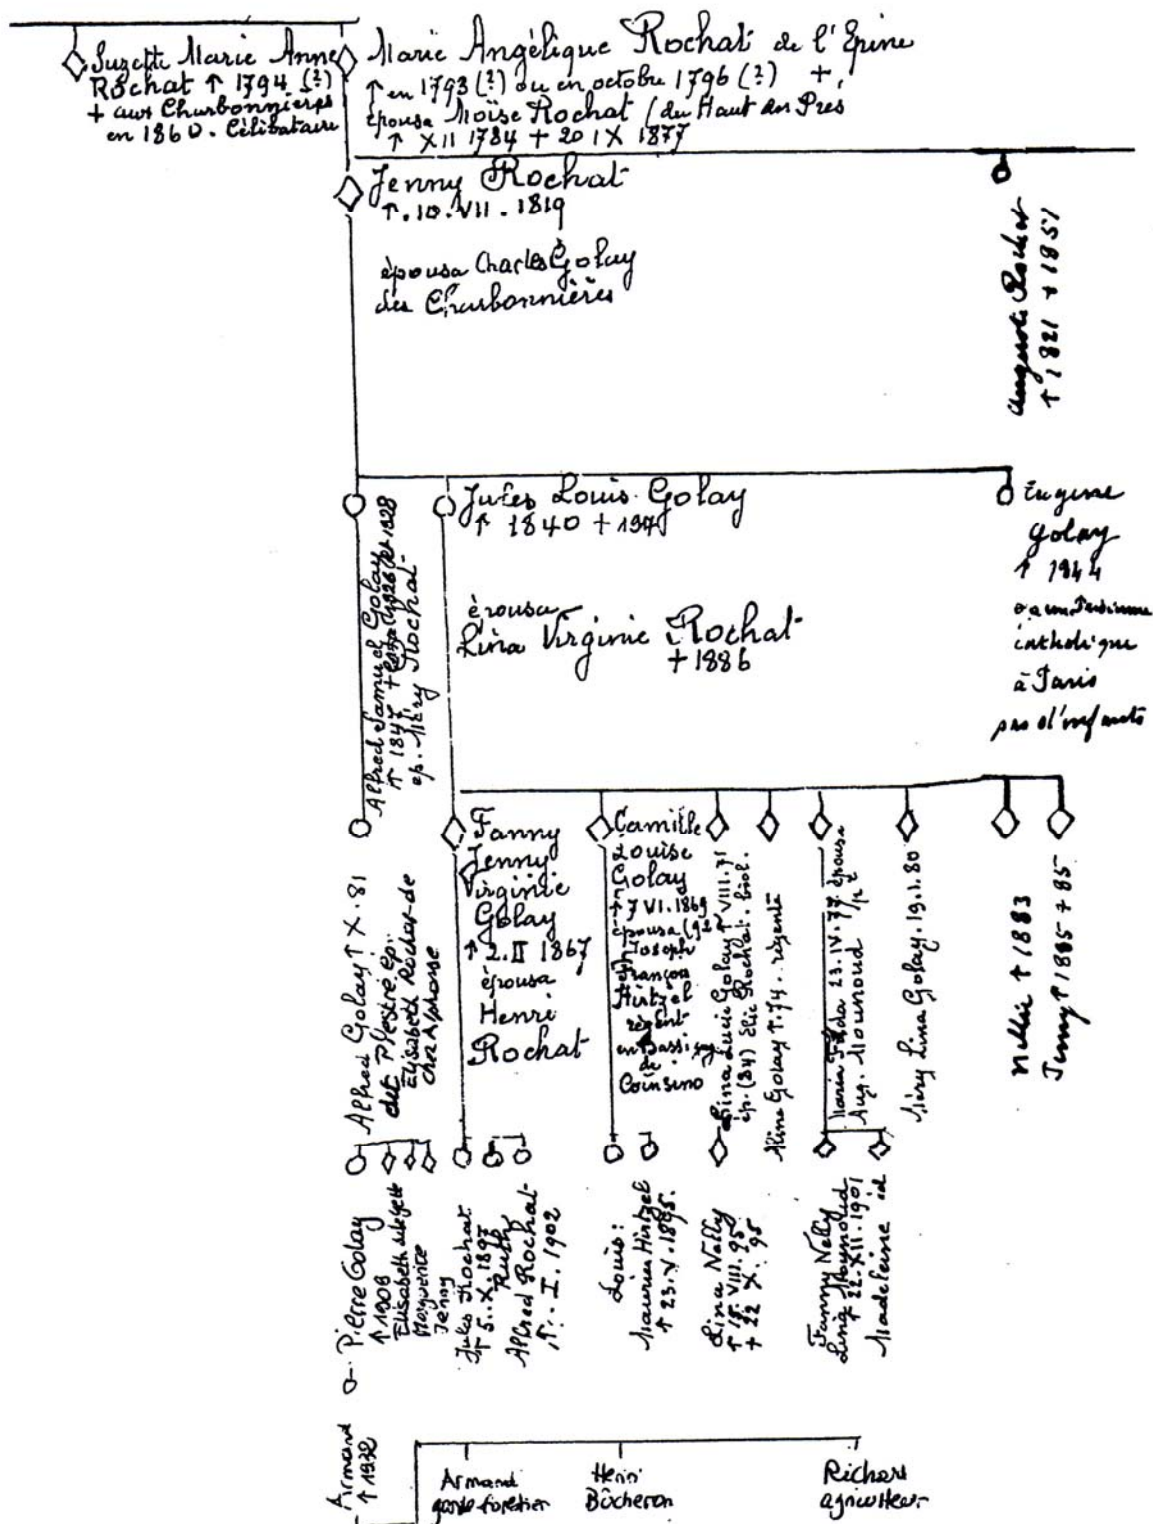 Suzette Marie Anne
Rochat ↑ 1794 (?)
+ aux Charbonnières
en 1860. Célibataire
Marie Angélique Rochat de l'Epine
↑ en 1793 (?) ou en octobre 1796 (?) +,
épousa Moïse Rochat (du Haut des Prés
↑ XII 1784 + 20 IX 1877
Jenny Rochat
↑. 10. VII. 1819
épousa Charles Golay
des Charbonnières
Auguste Rochat
↑ 1821 + 1851
Alfred Samuel Golay
↑ 1847 +
ep. Méry Rochat
Jules Louis Golay
↑ 1840 +
épousa
Lina Virginie Rochat
+ 1886
Eugène
Golay
↑ 1844
catholique
à Paris
pas d'enfants
Alfred Golay ↑ X. 81
dit ép.
Elisabeth Rochat de
chez Alphonse
Fanny
Jenny
Virginie
Golay
↑ 2. II 1867
épousa
Henri
Rochat
Camille
Louise
Golay
↑ 7 VI. 1869
épousa (92)
Joseph
François
Hirtzel
régent
en
de
Coinsins
Lina Lucie Golay ↑ VIII. 71
ép. (94) Elie Rochat.
Aline Golay ↑. 74. régente
Maria 23. IV. 77. épousa
Aug. Mounoud
Méry Lina Golay. 19. 1. 80
Nellie ↑ 1883
Jenny ↑ 1885 + 85
Pierre Golay
↑ 1908
Elisabeth
Marguerite
Jenny
Jules Rochat
↑ 5. X. 1897
Ruth
Alfred Rochat
↑. . I. 1902
Louis:
Maurice Hirtzel
↑ 23. V. 1895.
Lina Nelly
↑ 15. VIII. 95
+ 22 X. 95
Fanny Nelly
Mounoud
↑ 22. XII. 1901
Madeleine id
Armand
↑ 1932
Armand
garde forestier
Henri
Bûcheron
Richard
agriculteur